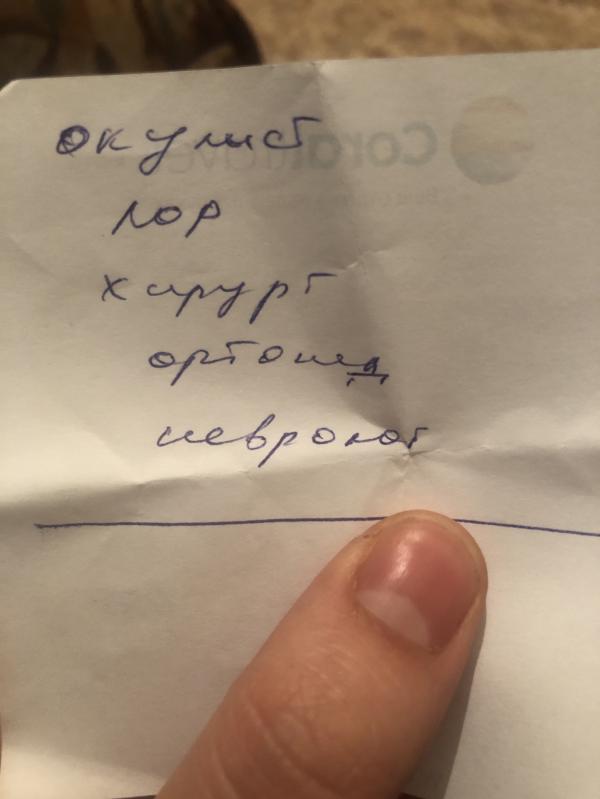 окулист
лор
хирург
ортопед
невролог